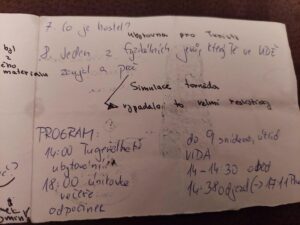 7. Co je hostel?
ubytovna pro turisty
8. Jeden z fyzikálních jevů, který tě ve VIDĚ
zaujal a proč
byl
z
materiálu
Simulace tornáda
vypadalo to velmi realisticky
PROGRAM:
14:00 Tugendhat
ubytování
18:00
večeře
odpočinek
do 9 snídaně, úklid
VIDA
14-14:30 oběd
14:38 odjezd (-> 17:11